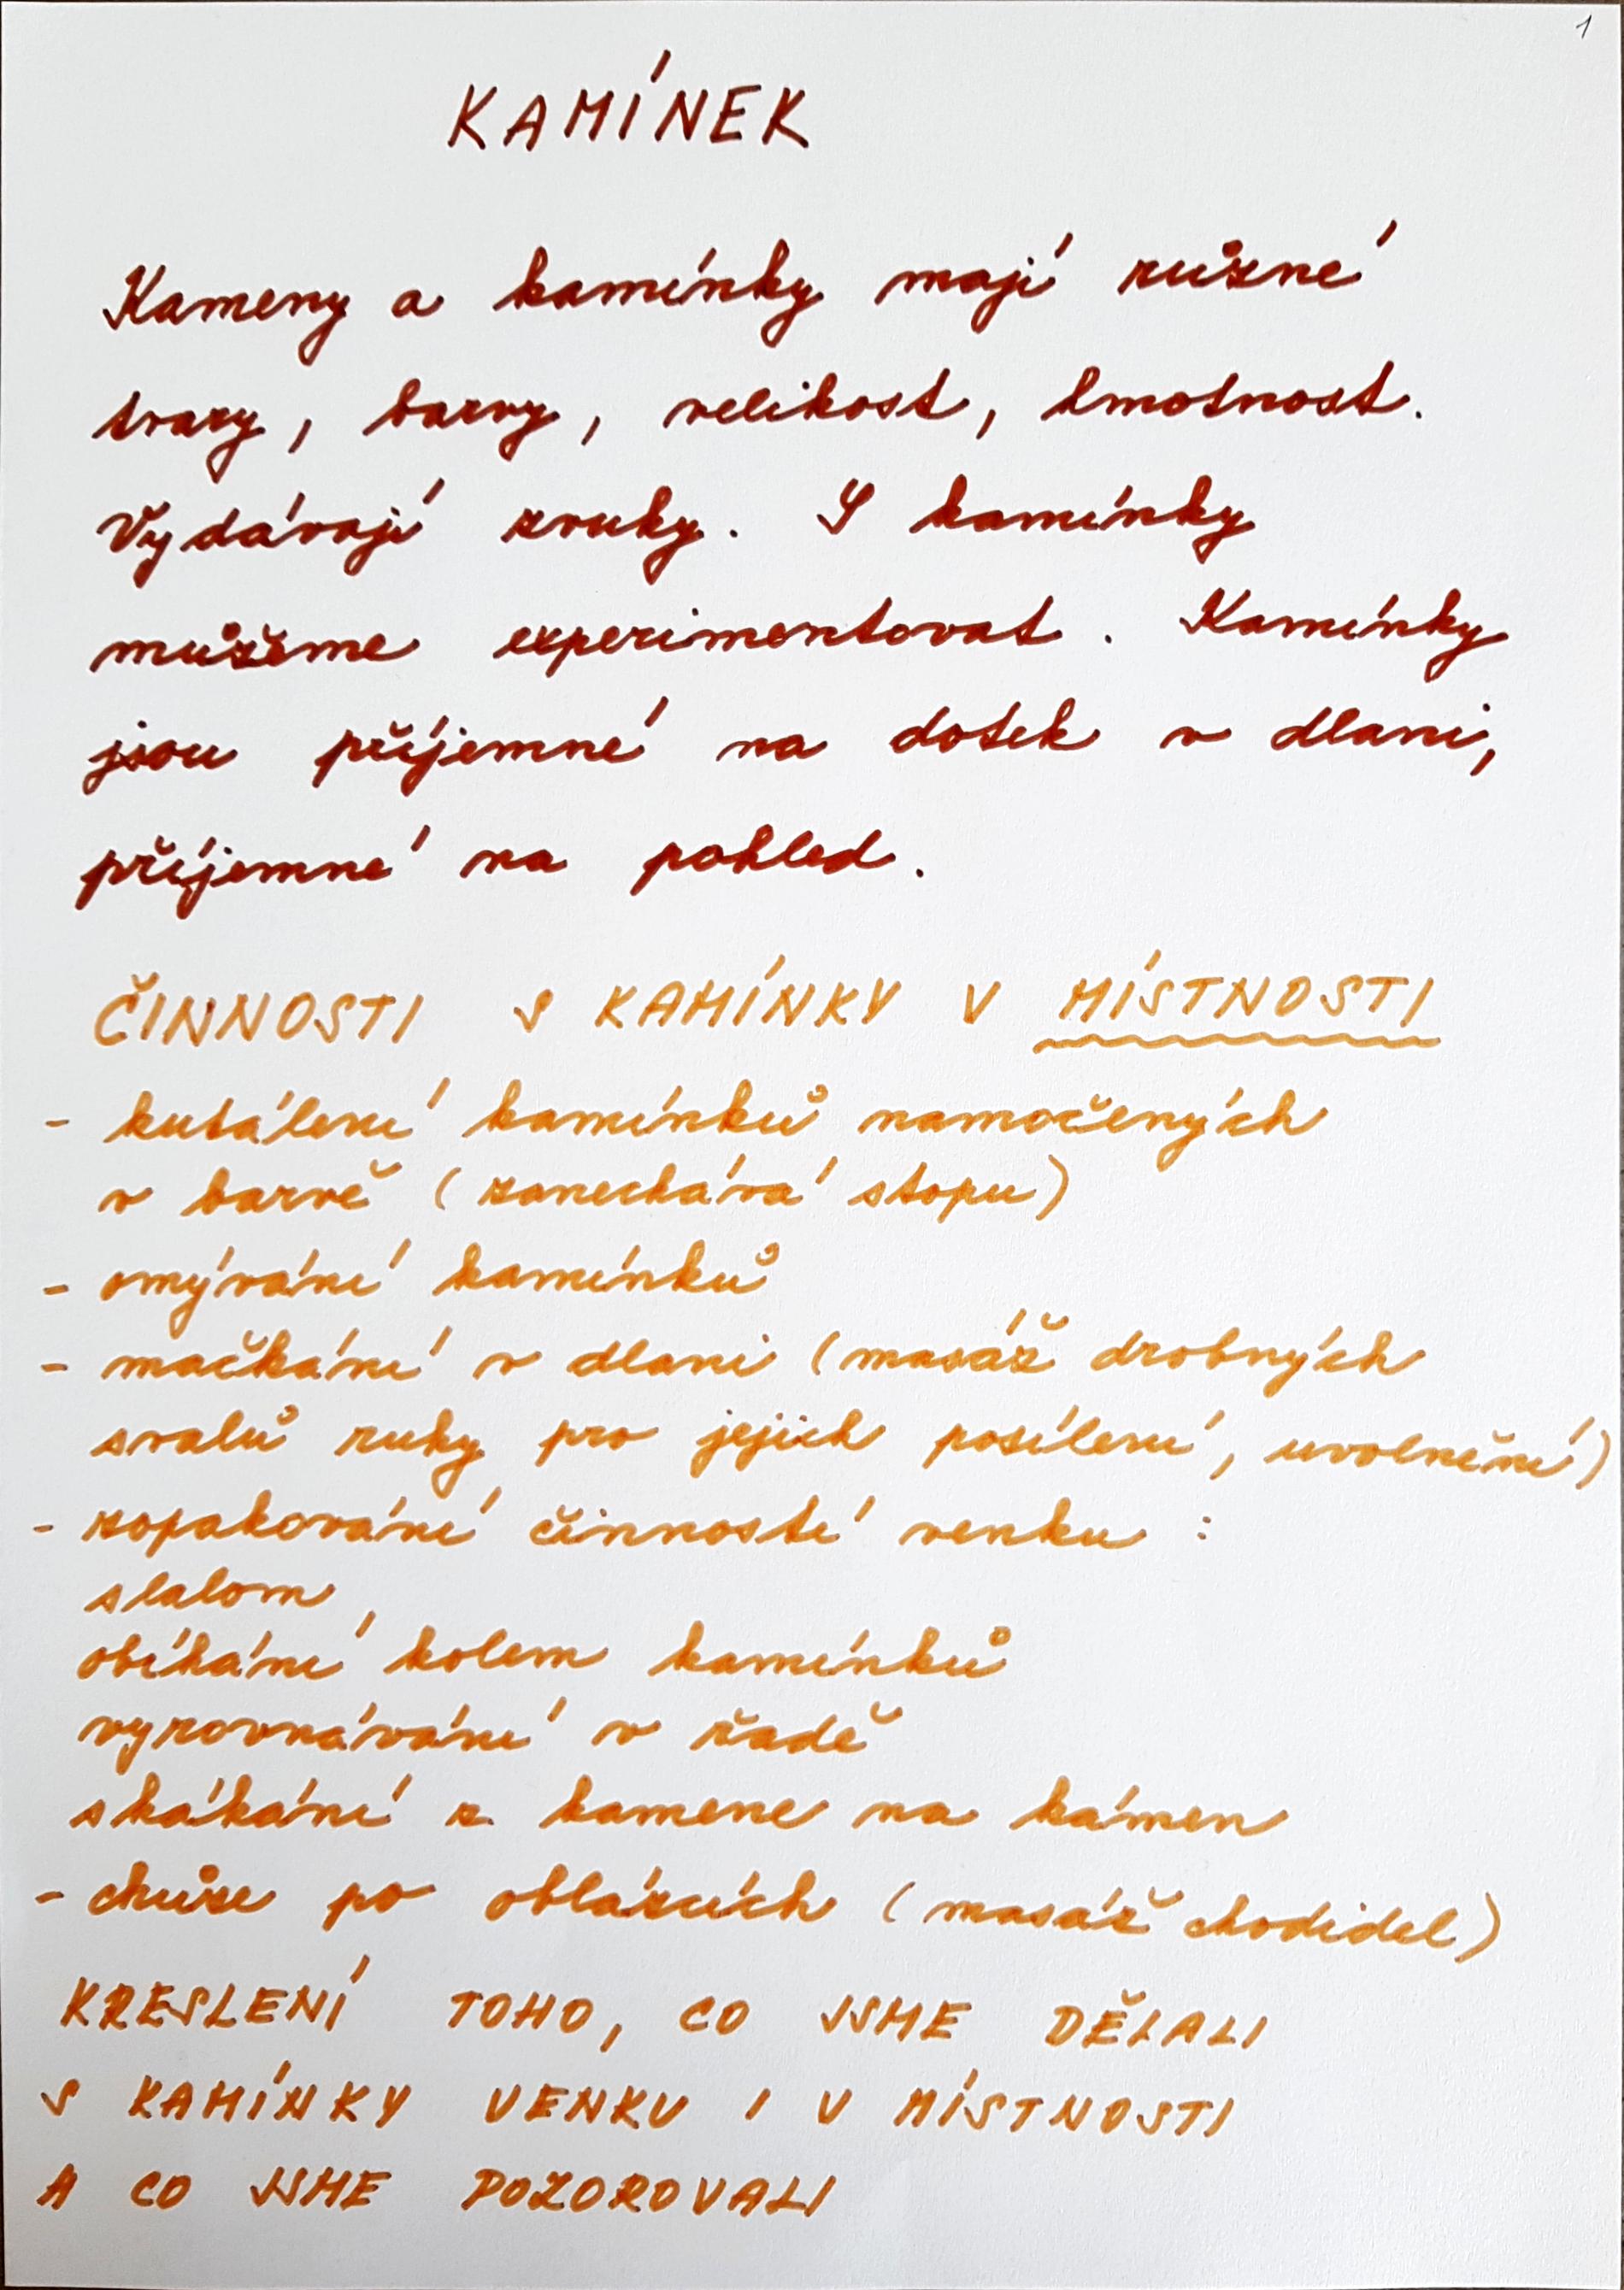 1
KAMÍNEK
Kameny a kamínky mají různé
tvary, barvy, velikost, hmotnost.
Vydávají zvuky. S kamínky
můžeme experimentovat. Kamínky
jsou příjemné na dotek v dlani,
příjemné na pohled.
ČINNOSTI S KAMÍNKY V MÍSTNOSTI
- kutálení kamínků namočených
v barvě (zanechává stopu)
- omývání kamínků
- mačkání v dlani (masáž drobných
svalů ruky pro jejich posílení, uvolnění)
- zopakování činností venku :
slalom
obíhání kolem kamínků
vyrovnávání v řadě
skákání z kamene na kámen
- chůze po oblázcích (masáž chodidel)
KRESLENÍ TOHO, CO JSME DĚLALI
S KAMÍNKY VENKU I V MÍSTNOSTI
A CO JSME POZOROVALI